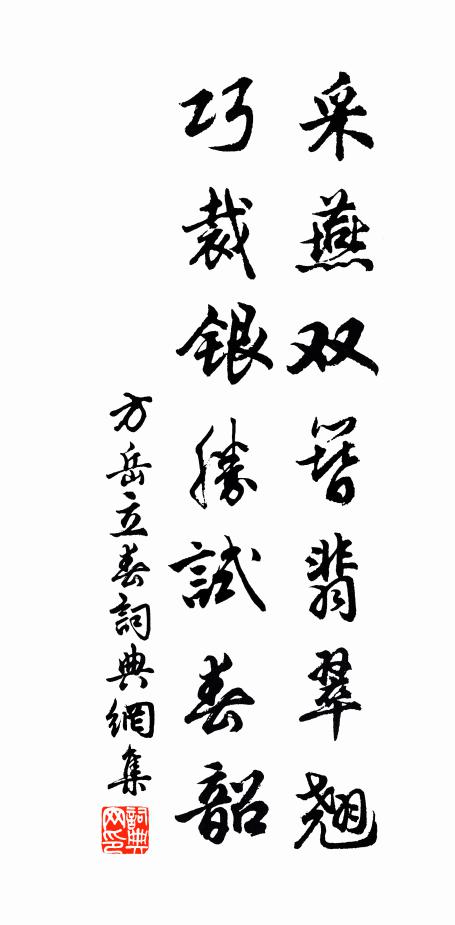 采燕双簪翡翠翘
巧裁銀勝試春韶
方岳立春詞典網集
詞典网印